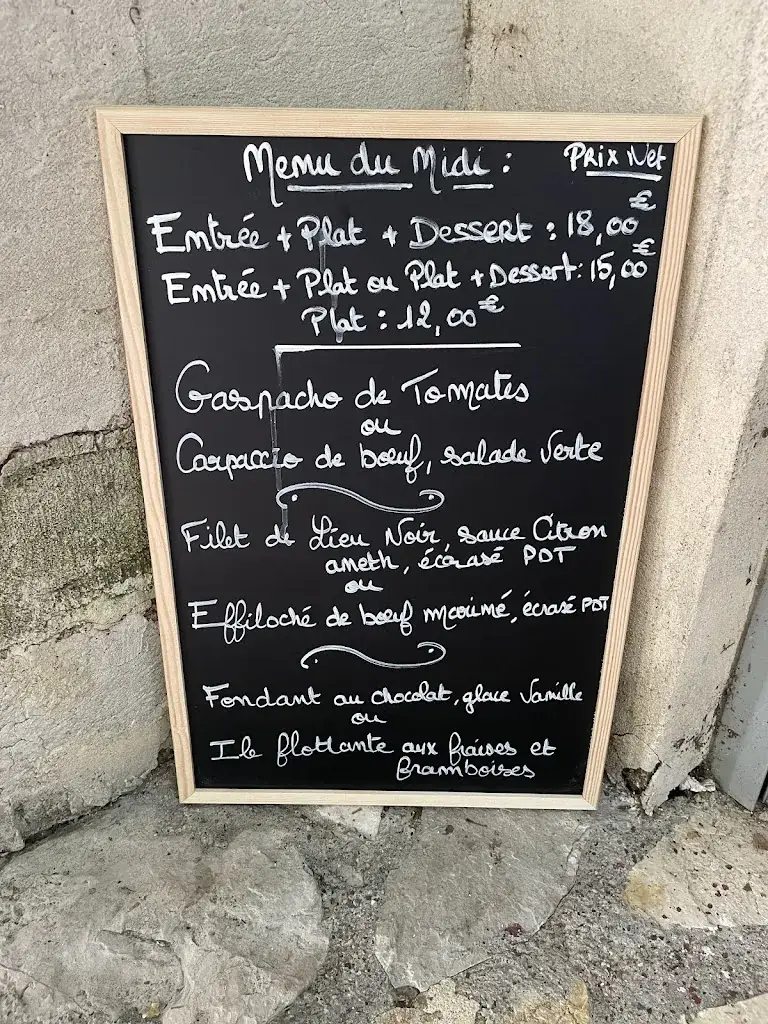 Menu du Midi :
Prix Net
Entrée + Plat + Dessert : 18,00€
Entrée + Plat ou Plat + Dessert : 15,00€
Plat : 12,00€
Gaspacho de Tomates
ou
Carpaccio de bœuf, salade verte
Filet de Lieu Noir, sauce Citron
aneth, écrasé PDT
ou
Effiloché de bœuf mariné, écrasé PDT
Fondant au chocolat, glace Vanille
ou
Ile flottante aux fraises et
framboises